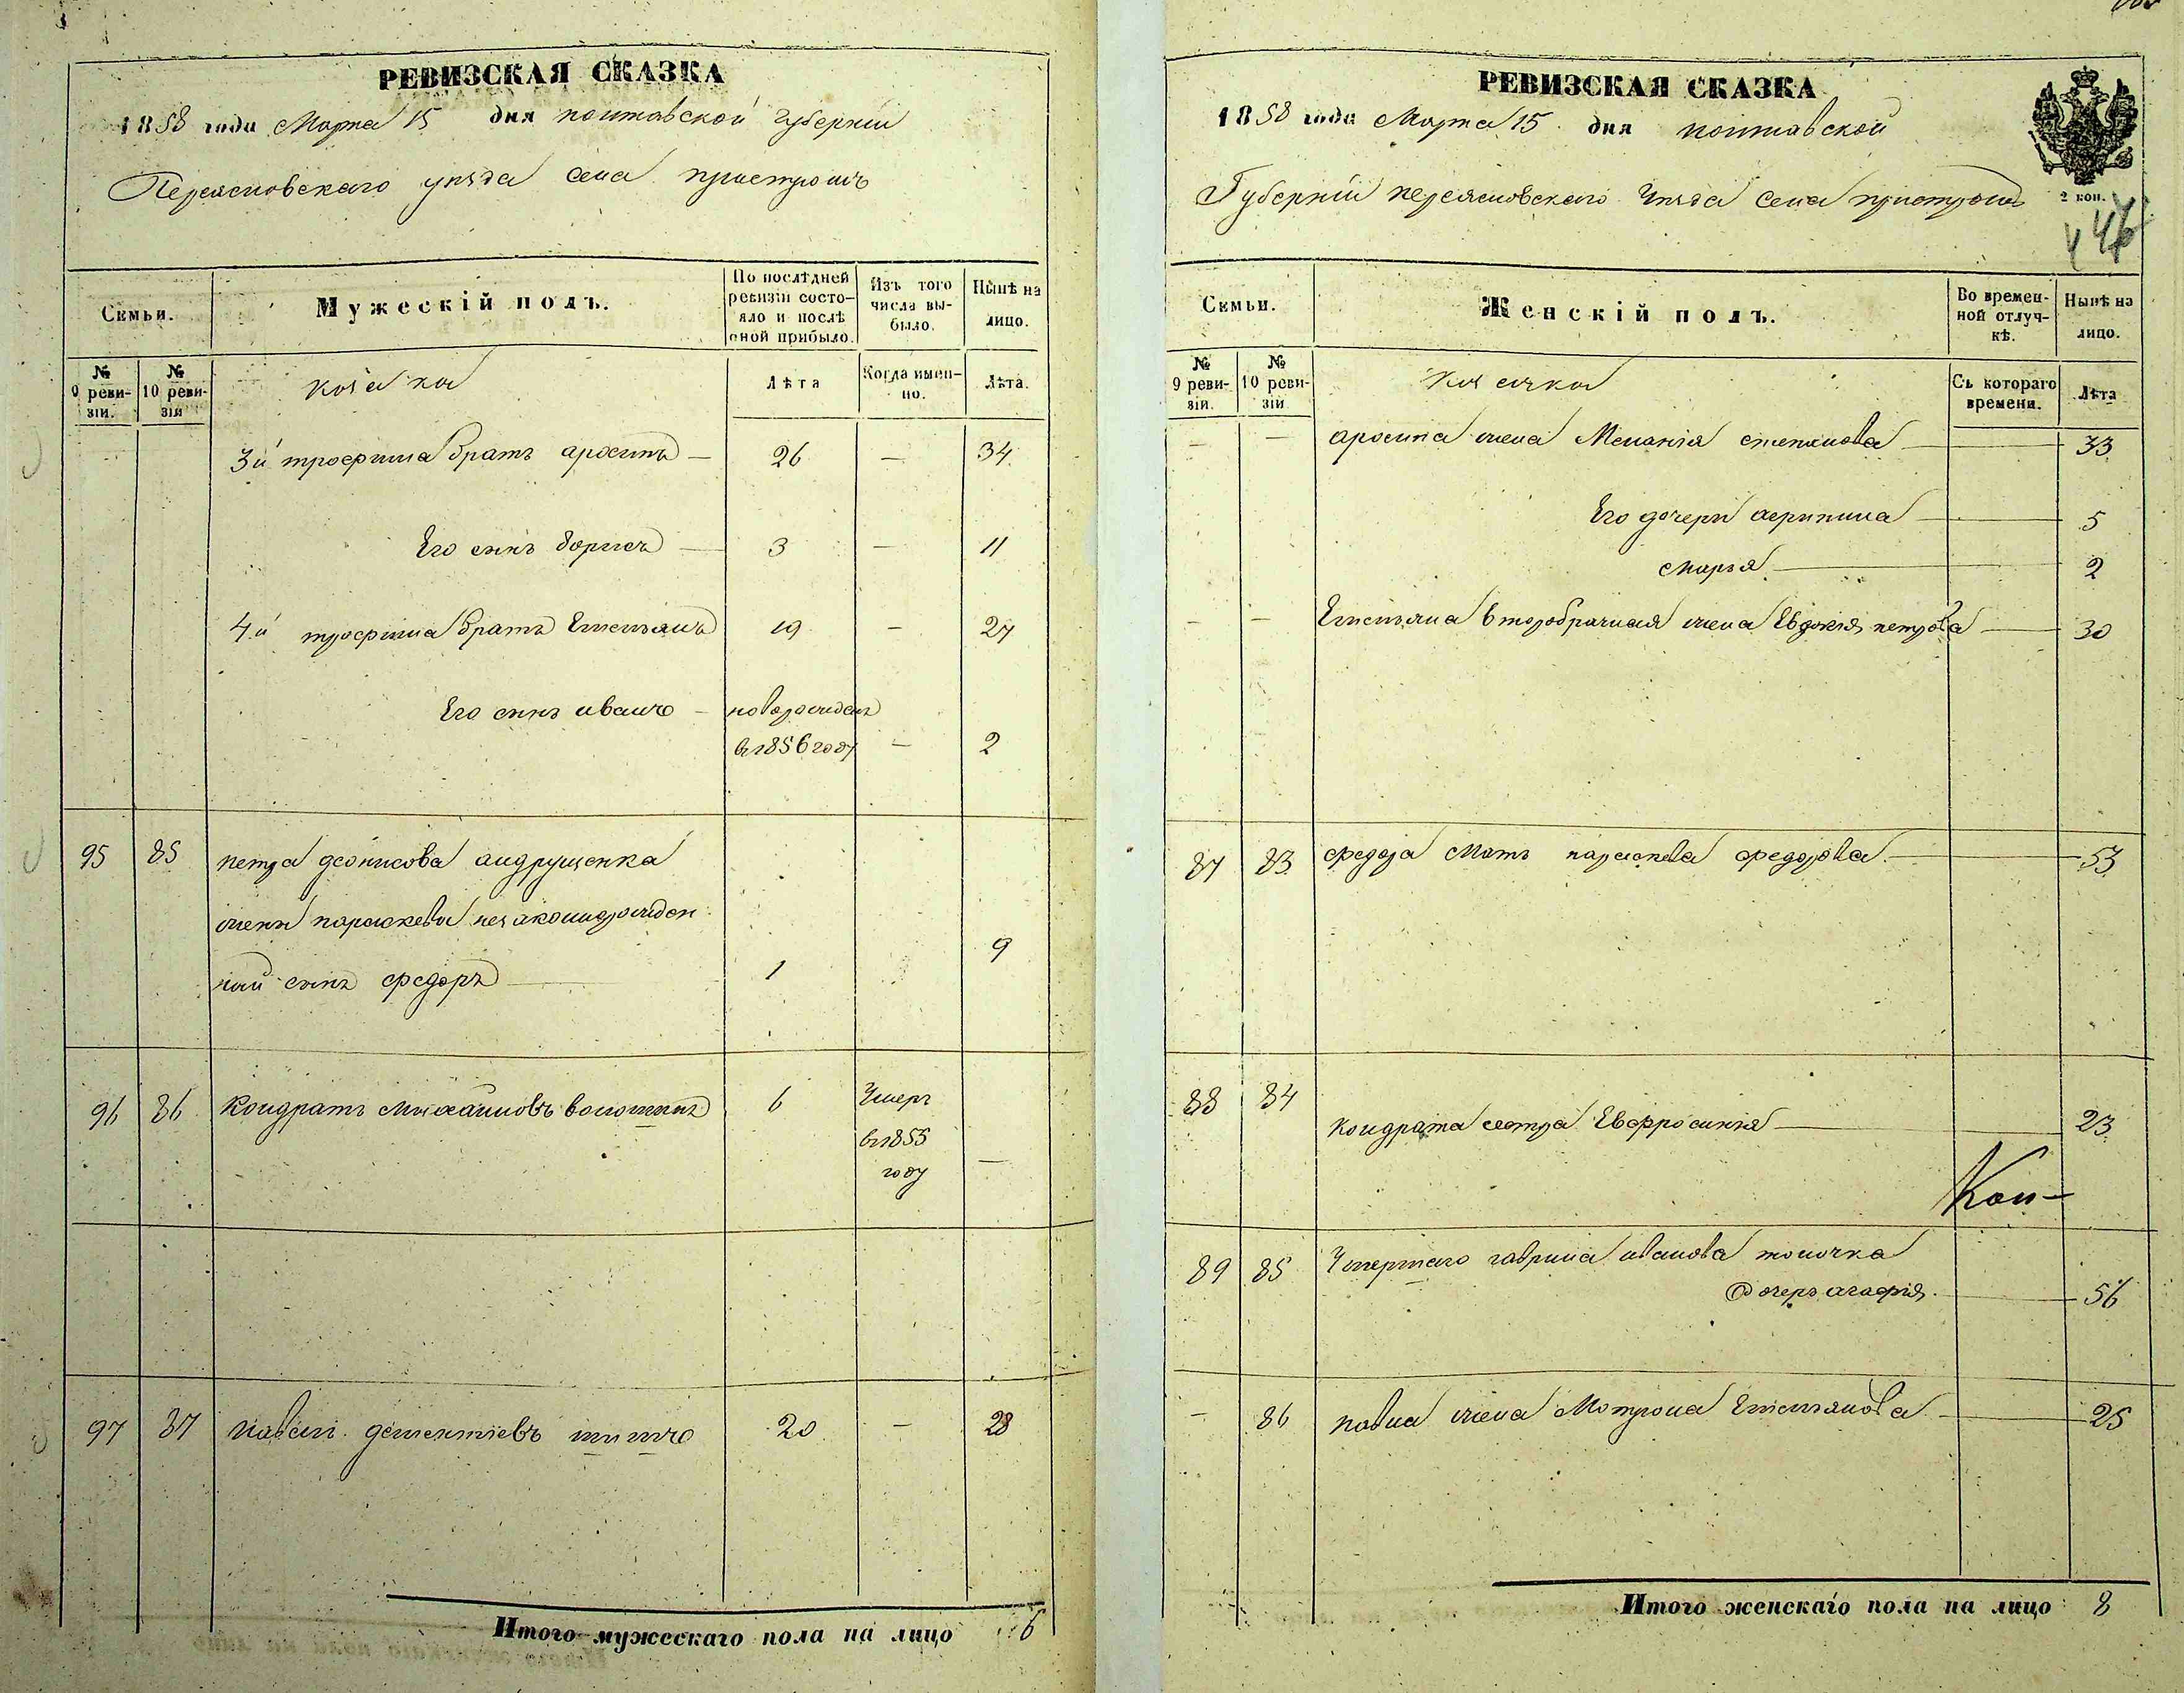 РЕВИЗСКАЯ СКАЗКА
1858 года Марта 15 дня полтавской губерніи
Переясловскаго уезда села пристромъ
Семьи.
Мужескій полъ.
По послѣдней ревизіи состо-
яло и послѣ
оной прибыло.
Изъ того
числа вы-
было.
Нынѣ на
лицо.
№
9 реви-
зіи.
№
10 реви-
зіи
козака
Лѣта
Когда имен-
но.
Лѣта.
3й трофима братъ архипъ — 26 — 34
Его сынъ борисъ — 3 — 11
4й трофима братъ Емельянъ 19 — 27
Его сынъ иванъ — новорожденъ
въ 1856 году — 2
95 85 петра деонисова андрущенка
жены параскевы незаконорожден
ный сынъ федоръ 1 9
96 86 Кондратъ михайловъ волошинъ 6 Умеръ
въ 1855
году —
97 87 павелъ дементіевъ 20 — 28
Итого мужескаго пола на лицо 6
РЕВИЗСКАЯ СКАЗКА
1858 года Марта 15 дня полтавской
Губерніи переясловскаго уезда села пристромъ
2 коп.
Семьи.
Женскій полъ.
Во времен-
ной отлуч-
кѣ.
Нынѣ на
лицо.
№
9 реви-
зіи.
№
10 реви-
зіи
козачка
Съ котораго
времени.
Лѣта
— — архипа жена Меланія степанова — 33
Его дочери агрипина — 5
марья — 2
— — Емельяна второбрачная жена Евдокія петрова — 30
87 83 федора мать параскева федорова — 53
88 84 кондрата сестра Евфросинія — 23
89 85 Умершаго гаврила иванова толочка
дочерь агафія — 56
— 86 павла жена Мотрона Емельянова — 25
Итого женскаго пола на лицо 8